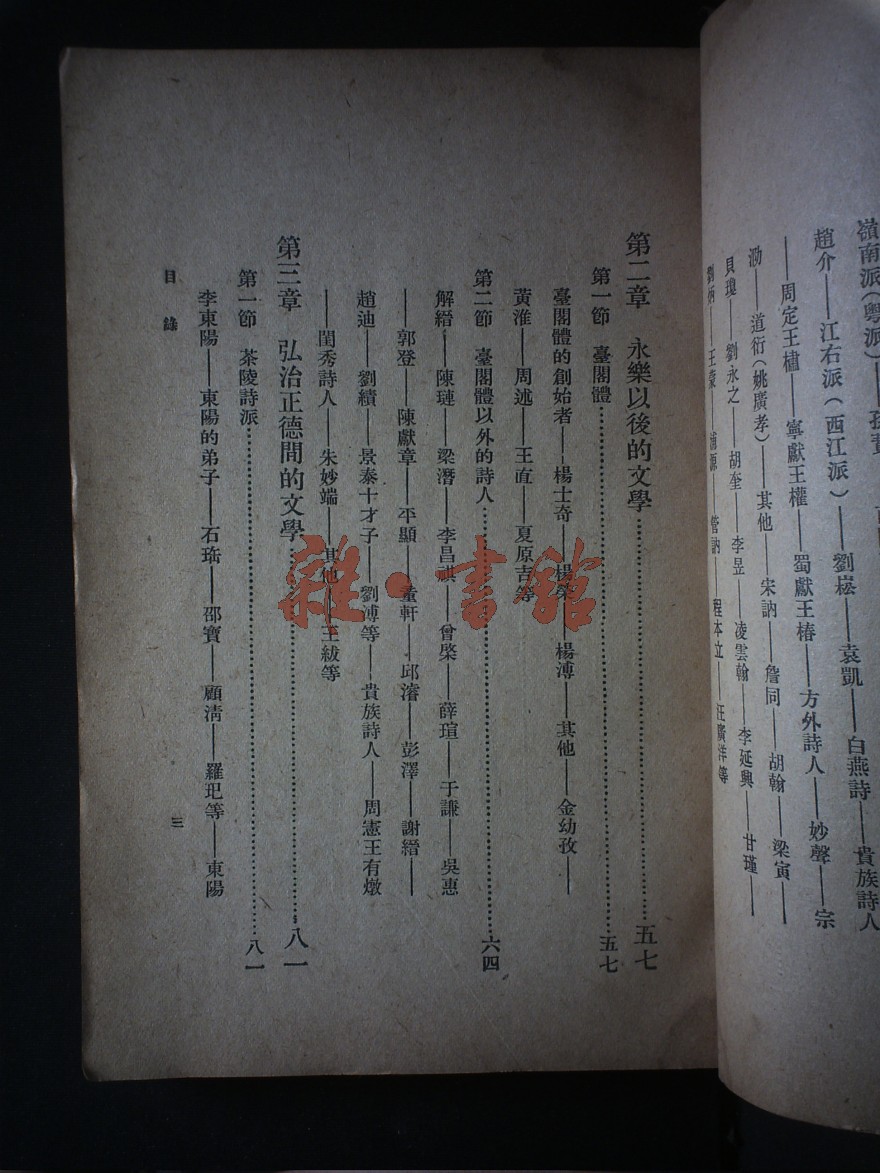 嶺南派（粵派）——孫蕡
趙介——江右派（西江派）——劉崧——袁凱——白燕詩——貴族詩人
——周定王橚——寧獻王權——蜀獻王椿——方外詩人——妙聲——宗
泐——道衍（姚廣孝）——其他——宋訥——詹同——胡翰——梁寅——
貝瓊——劉永之——胡奎——李昱——凌雲翰——李延興——甘瑾——
劉炳——王蒙——浦源——管訥——程本立——汪廣洋等
第二章　永樂以後的文學……五七
第一節　臺閣體……五七
臺閣體的創始者——楊士奇——楊榮——楊溥——其他——金幼孜——
黃淮——周述——王直——夏原吉等
第二節　臺閣體以外的詩人……六四
解縉——陳璉——梁潛——李昌祺——曾棨——薛瑄——于謙——吳惠
——郭登——陳獻章——平顯——童軒——邱濬——彭澤——謝縉——
趙迪——劉績——景泰十才子——劉溥等——貴族詩人——周憲王有燉
——閨秀詩人——朱妙端——其他——王紱等
第三章　弘治正德間的文學……八一
第一節　茶陵詩派……八一
李東陽——東陽的弟子——石珤——邵寶——顧清——羅玘等——東陽
目錄
三
雜·書館